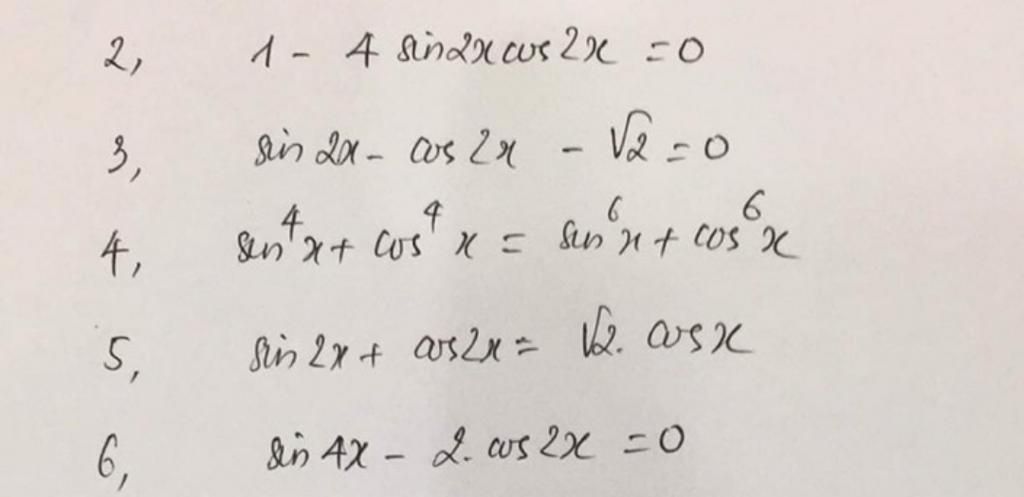 2, 1 - 4 sin2x cos 2x = 0
3, sin 2x - cos 2x - √2 = 0
4, sin⁴x + cos⁴ x = sin⁶x + cos⁶x
5, sin 2x + cos2x = √2. cosx
6, sin 4x - 2. cos 2x = 0